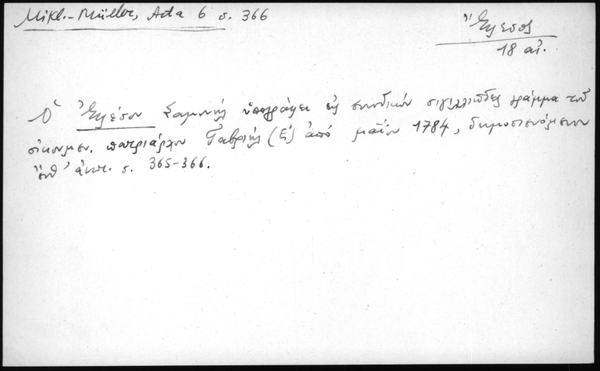 Mikl.-Müller, Acta 6 σ. 366
Ἔφεσος
18 αἰ.
Ὁ Ἐφέσου Σαμουὴλ ὑπογράφει εἰς συνοδικὸν σιγιλλιῶδες γράμμα τοῦ
οἰκουμεν. πατριάρχου Γαβριὴλ (Δ΄) ἀπὸ μαΐου 1784, δημοσιευόμενον
ἔνθ' ἀνωτ. σ. 365-366.